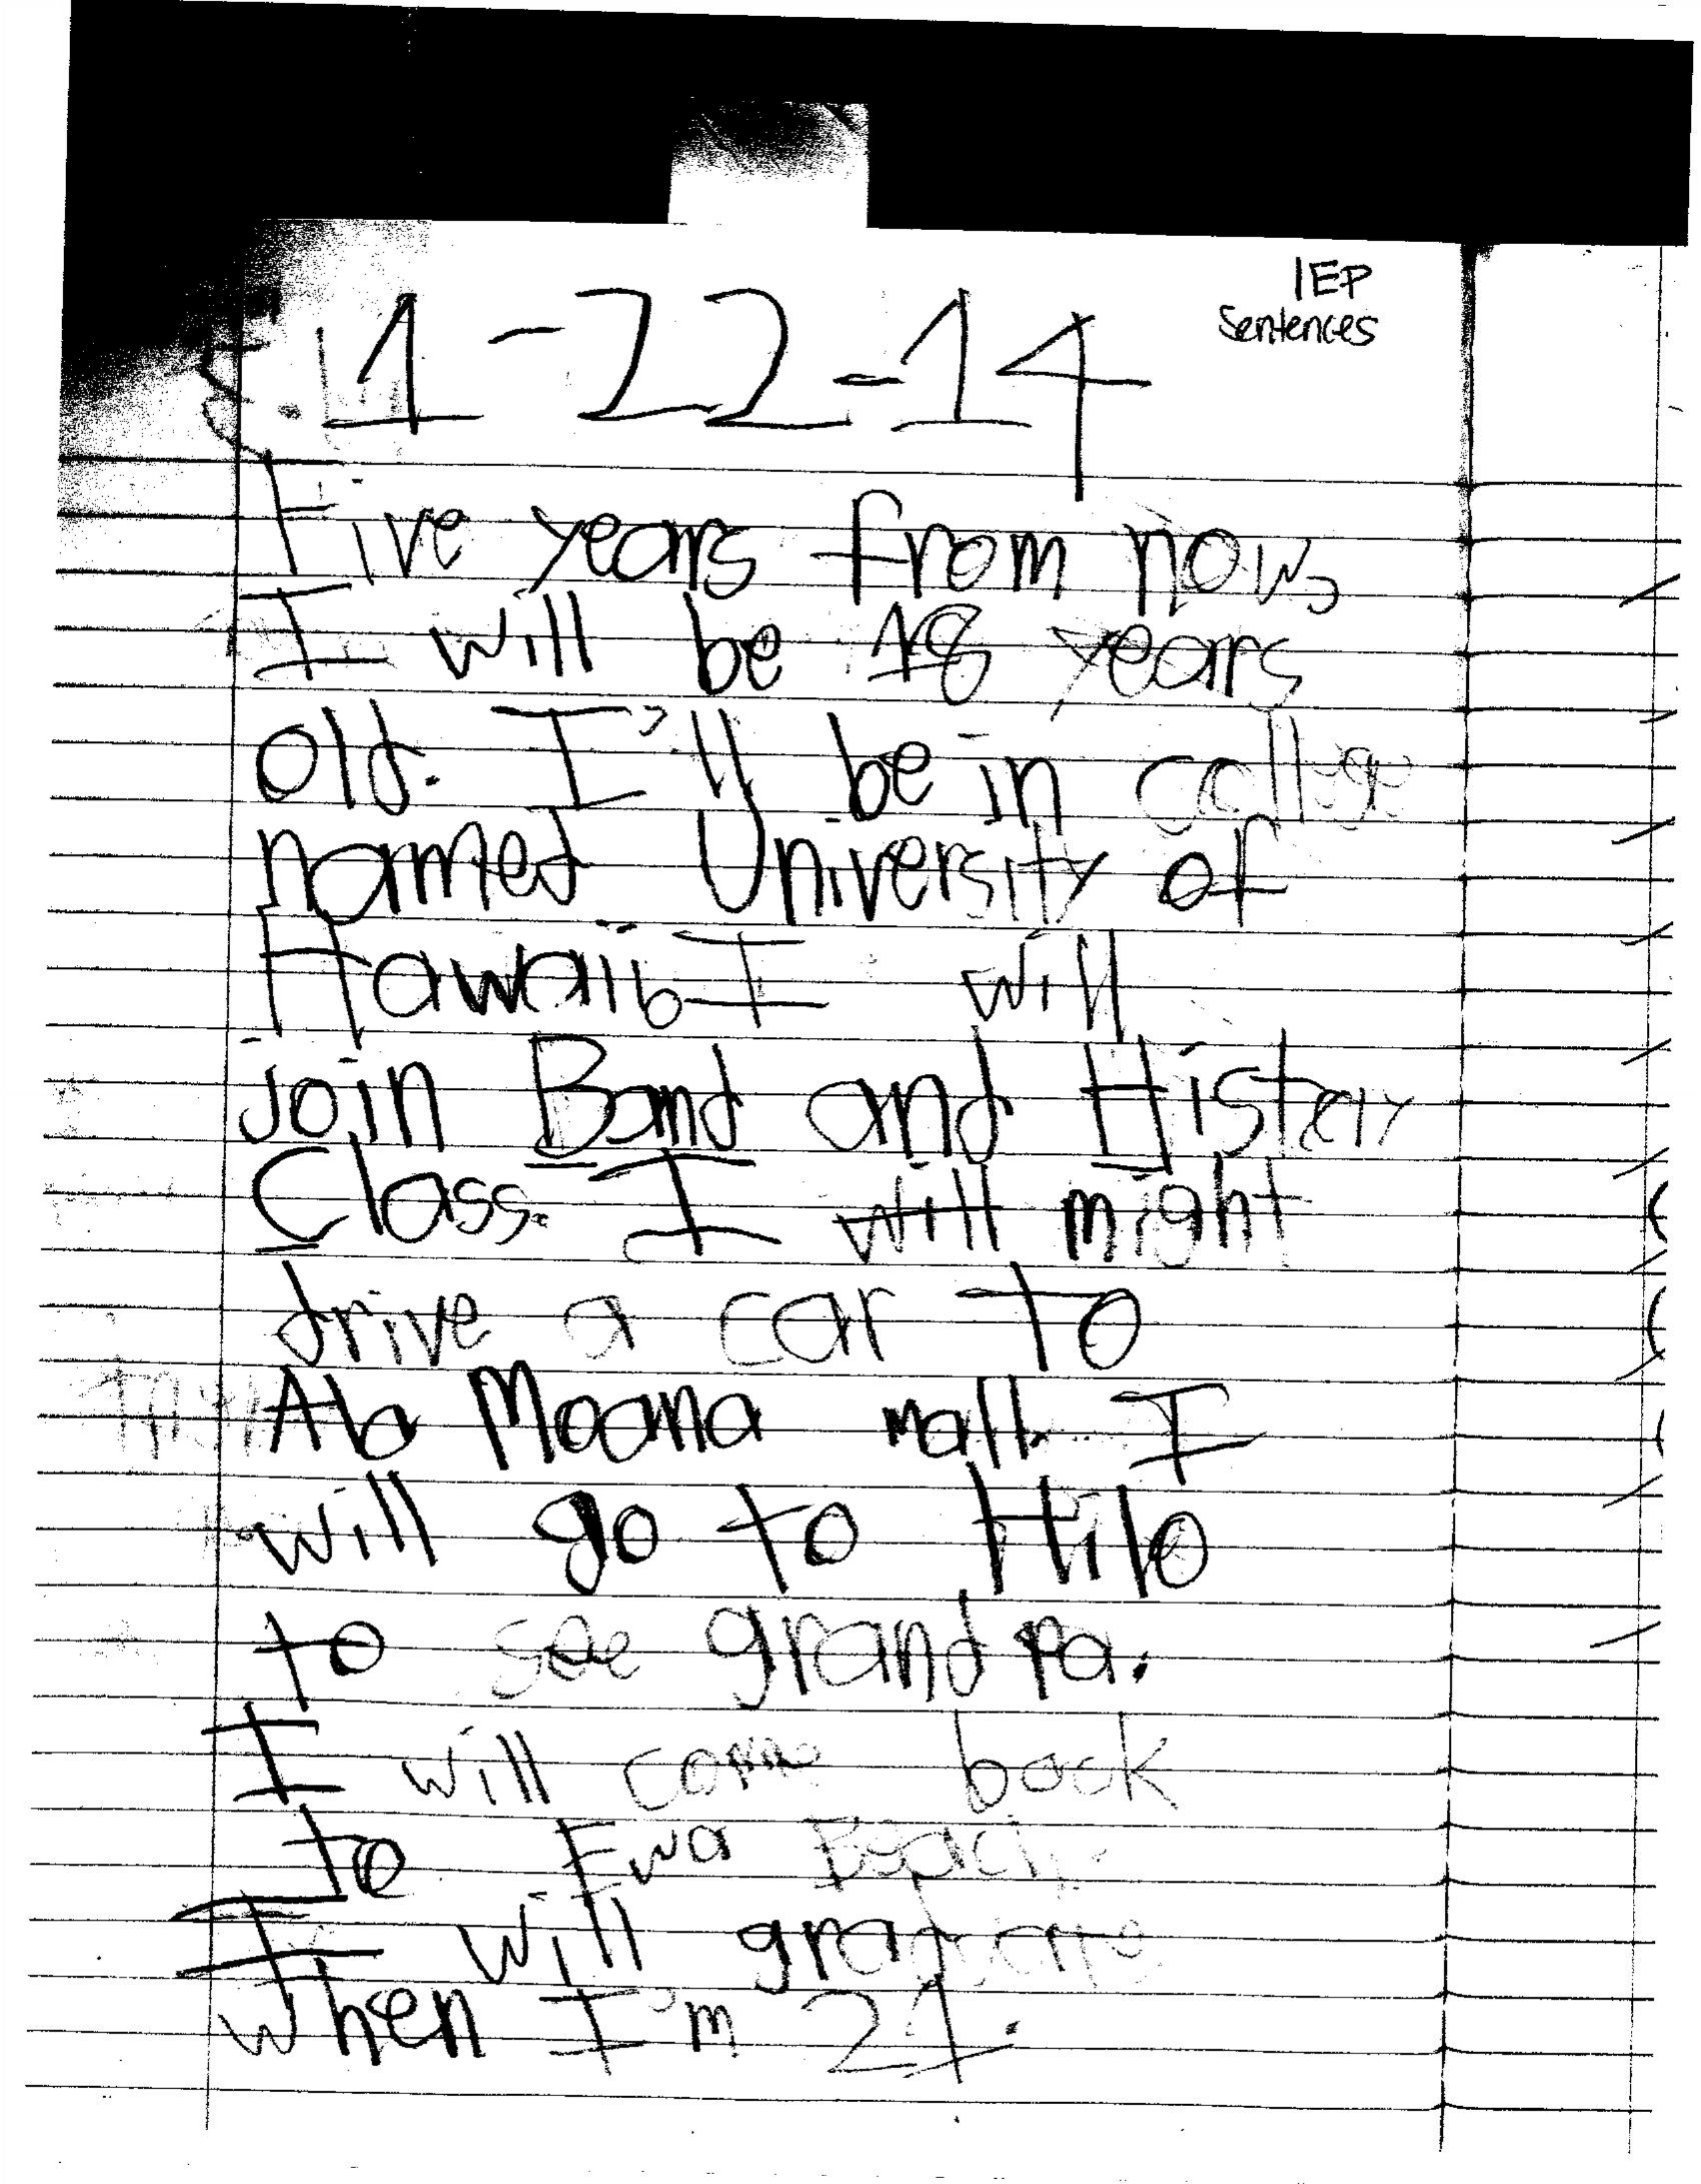 IEP
Sentences
1-22-14
Five years from now,
I will be 18 years
old. I'll be in college
named University of
Hawaii. I will
join Band and History
Class. I will might
drive a car to
Ala Moana mall. I
will go to Hilo
to see grandpa.
I will come back
to Ewa Beach.
I will graduate
when I'm 21.